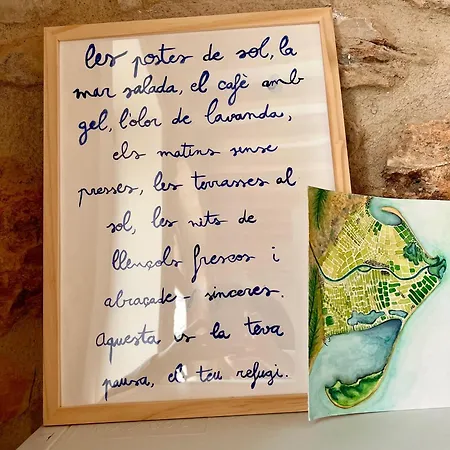 les postes de sol, la
mar salada, el cafè amb
gel, l'olor de lavanda,
els matins sense
presses, les terrasses al
sol, les nits de
llençols frescos i
abraçades sinceres.
Aquesta és la teva
pausa, el teu refugi.